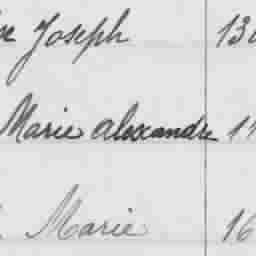 Joseph 13
Marie alexandre 11
Marie 16